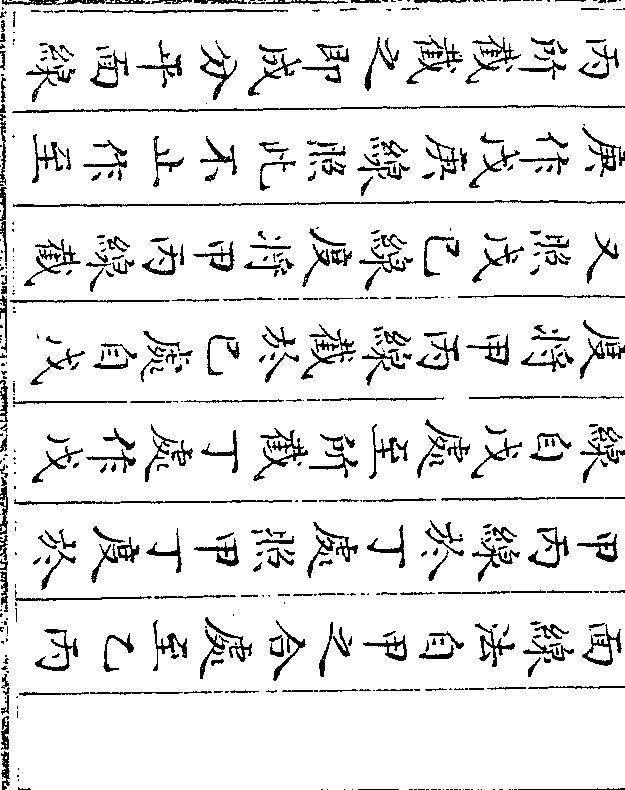 面線法自甲之合處至乙丙
甲丙線於丁處照甲丁度於
線自戊處至所截丁處作戊
度將甲丙線截於己處自戊
又照戊己線度將甲丙線截
庚作戊庚線照此不止作至
丙所截截之即成分平面線